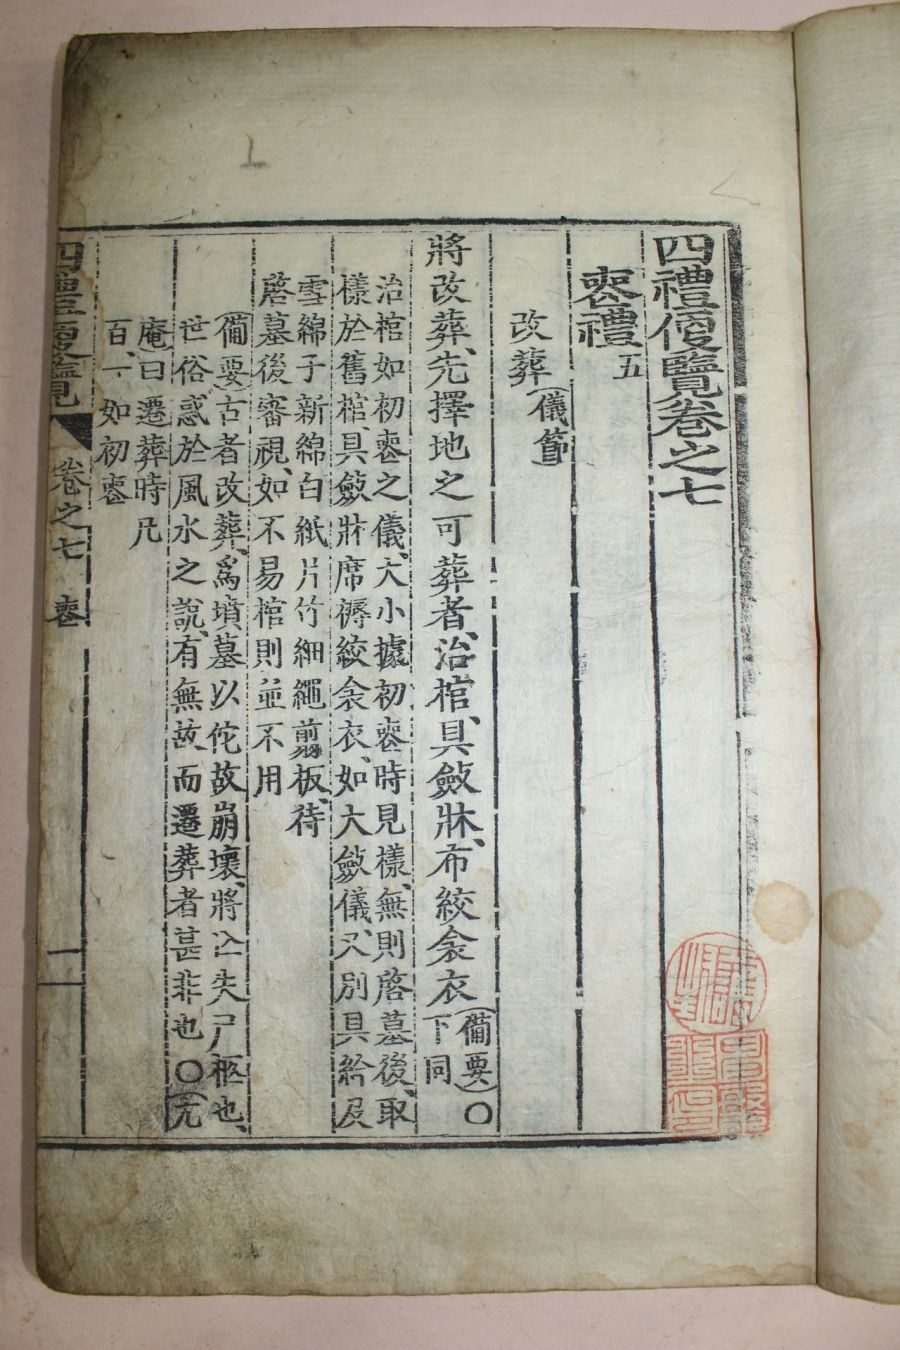 四禮便覽卷之七
喪禮五
改葬(儀節)
將改葬、先擇地之可葬者、治棺、具斂牀、布絞衾衣(備要)○下同
治棺如初喪之儀、大小據初喪時見樣、無則啓墓後、取
樣於舊棺、具斂牀席褥絞衾衣、如大斂儀、又別具紟及
雪綿子新綿白紙片竹細繩翦板、待
啓墓後審視、如不易棺則並不用
(備要)古者改葬、爲墳墓以佗故崩壞、將亡失尸柩也、
世俗惑於風水之說、有無故而遷葬者甚非也○(尤
庵)曰遷葬時凡
百、一如初喪
四禮便覽 卷之七 喪 一